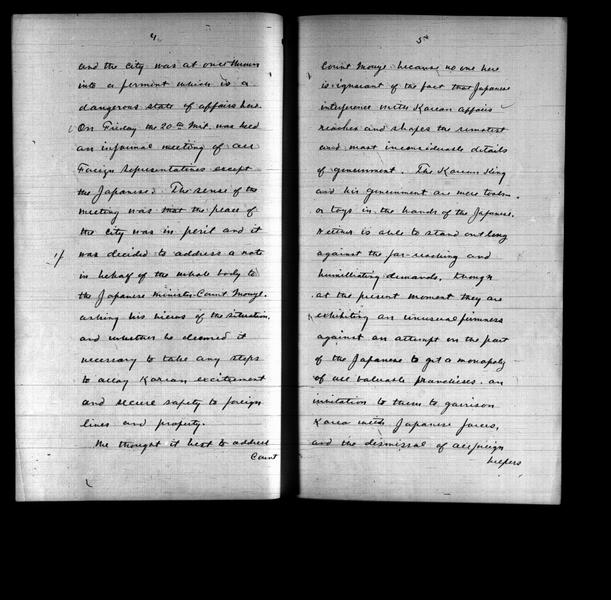 4.
and the city was at once thrown
into a ferment which is a
dangerous state of affairs here.
On Friday the 20th inst. was held
an informal meeting of all
Foreign representatives except
the Japanese. The sense of the
meeting was that the peace of
the city was in peril and it
was decided to address a note
in behalf of the whole body to
the Japanese Minister Count Inouye.
asking his views of the situation,
and whether he deemed it
necessary to take any steps
to allay Korean excitement
and secure safety to foreign
lives and property.
We thought it best to address
Count
5
Count Inouye because no one here
is ignorant of the fact that Japanese
interference with Korean affairs
reaches and shapes the remotest
and most inconsiderable details
of government. The Korean King
and his government are mere tools
or toys in the hands of the Japanese.
Neither is able to stand out long
against the far-reaching and
humiliating demands, though
at the present moment they are
exhibiting an unusual firmness
against an attempt on the part
of the Japanese to get a monopoly
of all valuable franchises. an
invitation to them to garrison
Korea with Japanese forces,
and the dismissal of all foreign
helpers